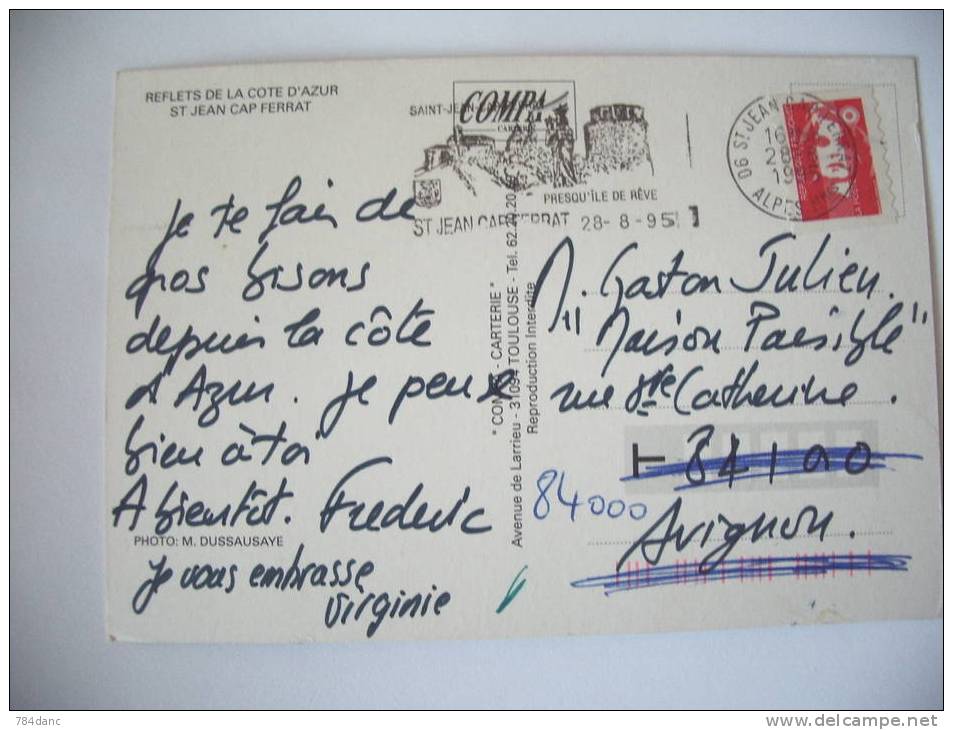 REFLETS DE LA COTE D'AZUR
ST JEAN CAP FERRAT
COMPA
CARTERIE
SAINT-JEAN-
PRESQU'ILE DE RÊVE
ST JEAN CAP FERRAT 28-8-95
06 ST JEAN CAP FERRAT
ALPES
Je te fais de
gros bisons
depuis la côte
d'Azur. Je pense
bien à toi
A bientôt. Frederic
PHOTO: M. DUSSAUSAYE
Je vous embrasse
Virginie
" COMPA - CARTERIE "
Avenue de Larrieu - 31094 TOULOUSE - Tel. 62.20.20
Reproduction Interdite
M. Gaston Julien.
"Maison Paisible"
rue Ste Catherine.
T 84100
84000
Avignon.
784danc
www.delcampe.net